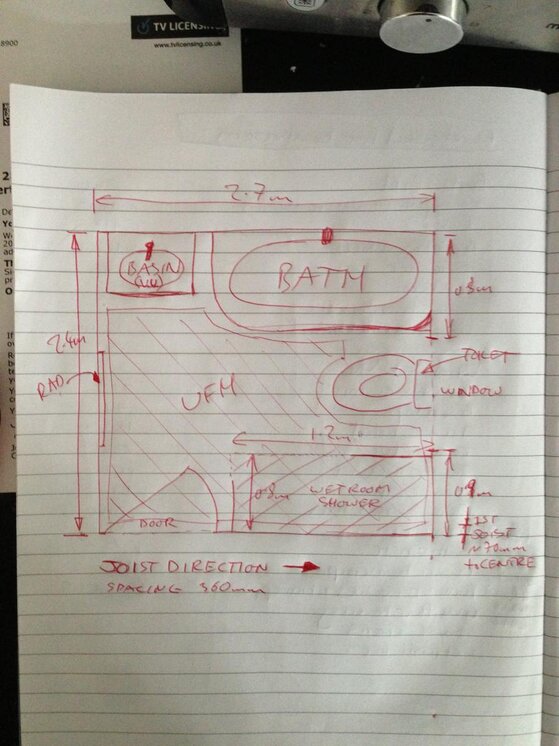 TV LICENSING
www.tvlicensing.co.uk
8900
2.7m
BASIN
(VU)
BATH
0.8m
2.4m
TOILET
RAD
UFH
WINDOW
1.2m
0.8m
WETROOM
SHOWER
0.9m
DOOR
1ST
JOIST
~70mm
to CENTRE
JOIST DIRECTION
SPACING 360mm